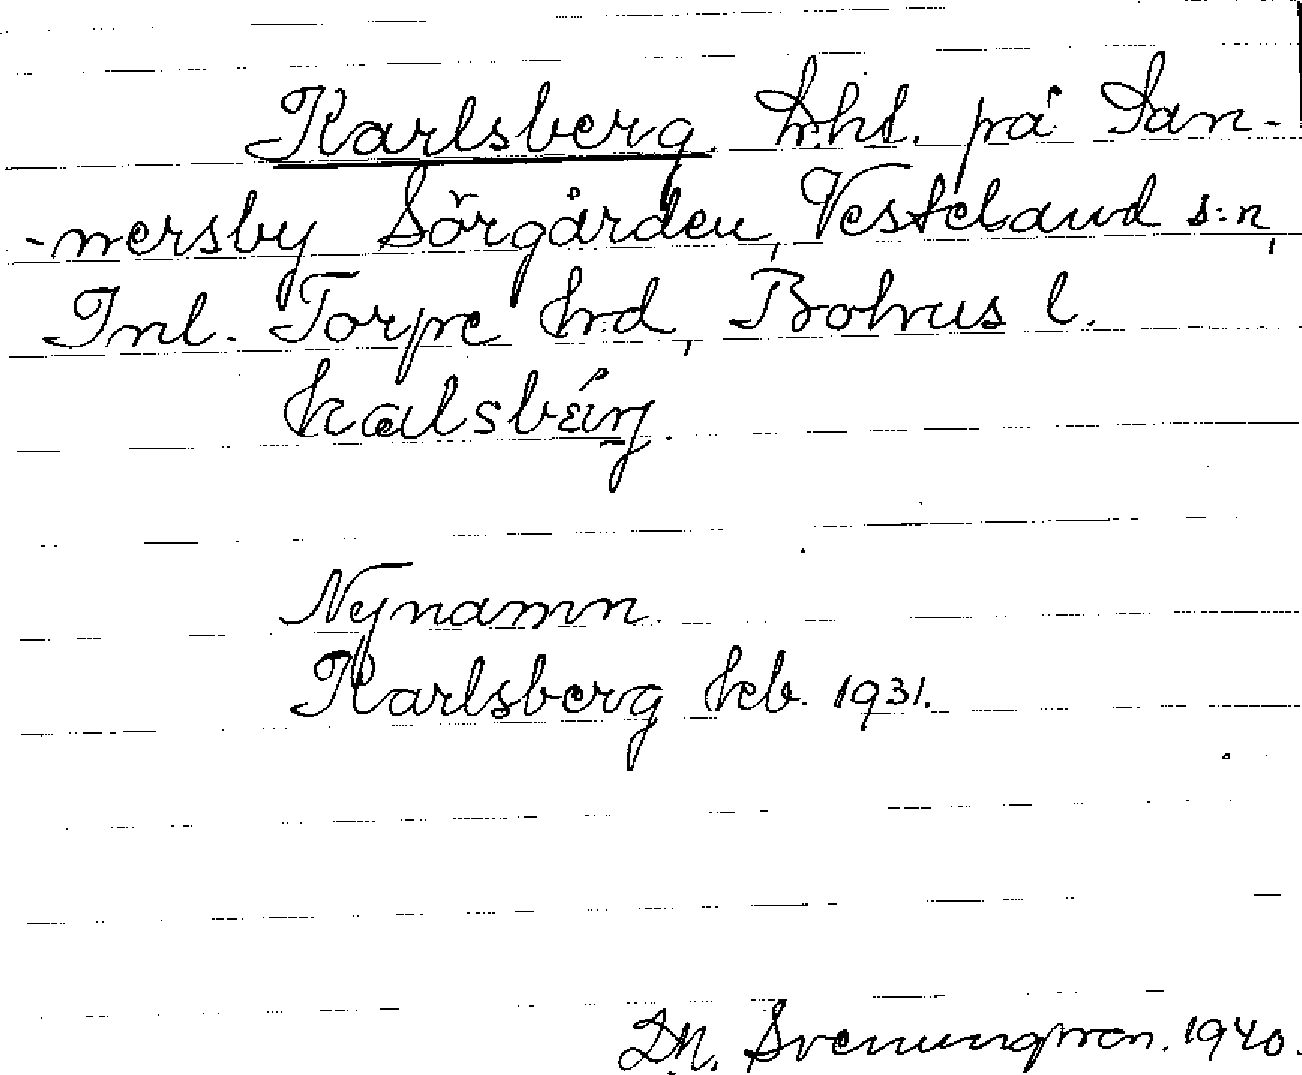 Karlsberg. Lht. på San-
-nersby Sörgården, Vesteland s:n,
Inl. Torpe hrd, Bohus l.
Nynamn.
Karlsberg kb. 1931.
Svenungsson. 1940.